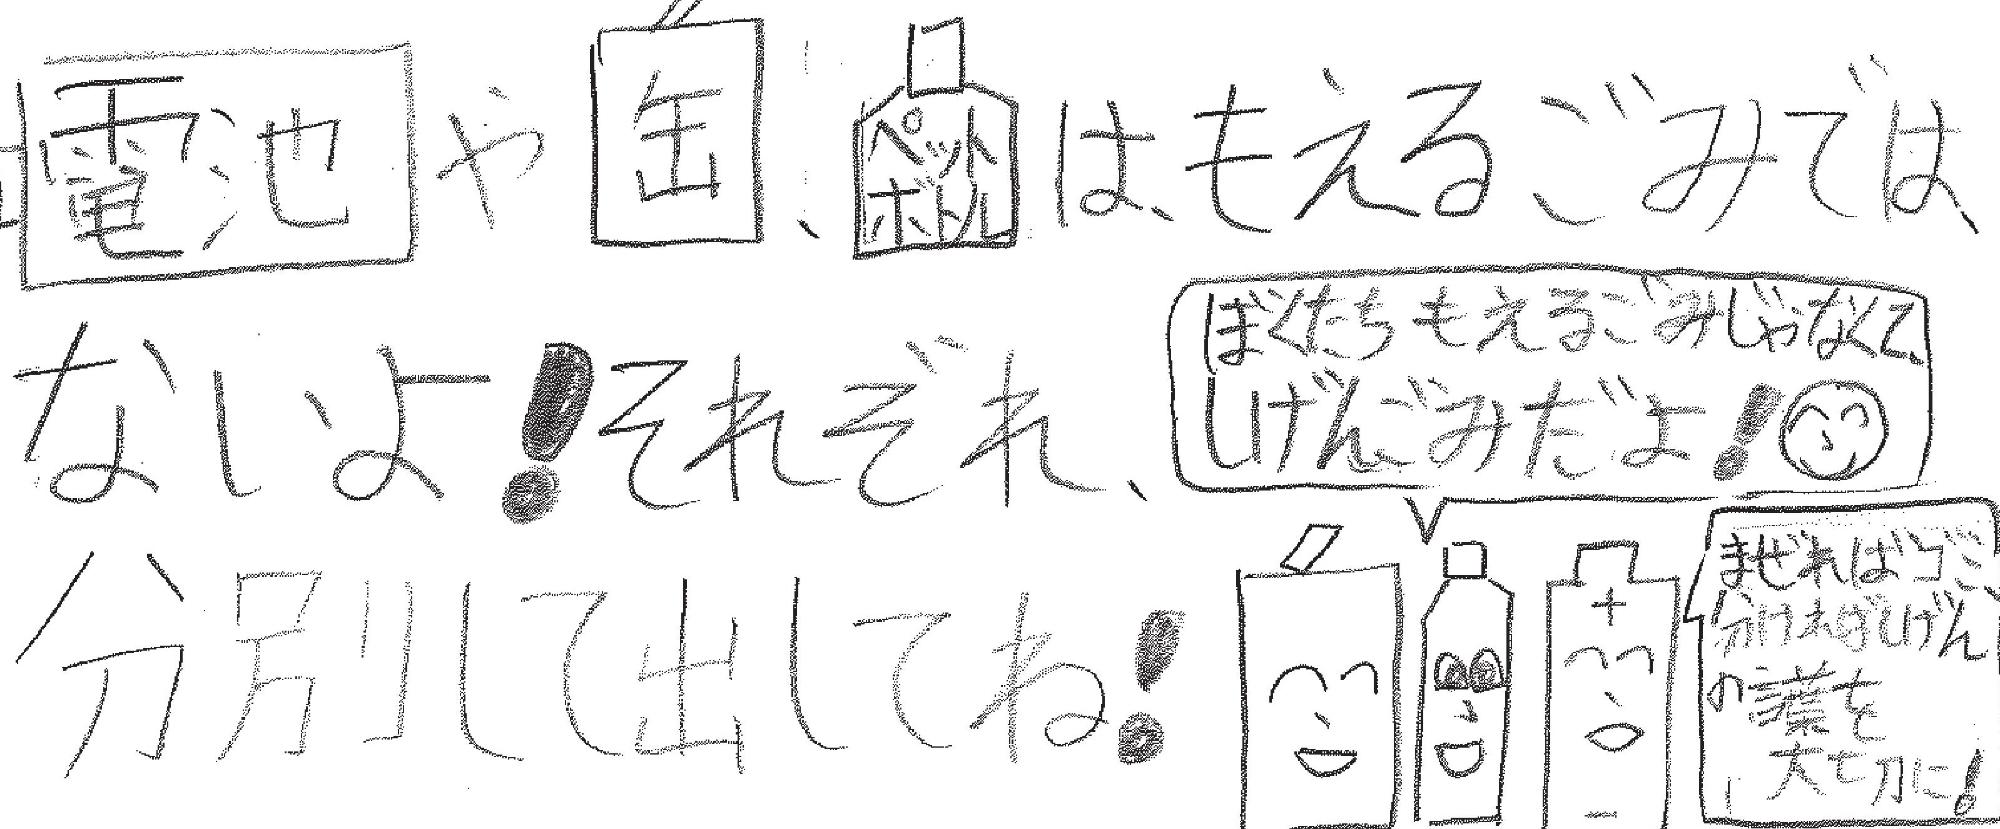 電池や缶、ペットボトルは、もえるごみでは、
ないよ！それぞれ、
分別して出してね！
ぼくたちもえるごみじゃなくて、
しげんごみだよ！
まぜればゴミ
分ければしげん
の葉を
大切に！